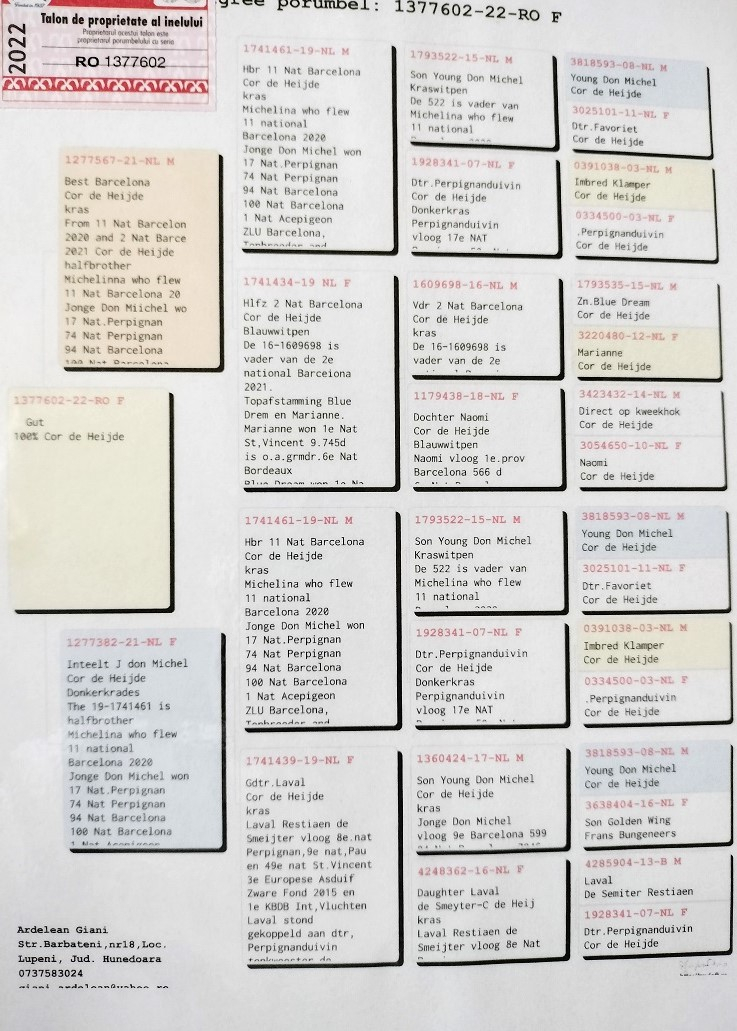 gree porumbel: 1377602-22-RO F
2022
Talon de proprietate al inelului
Proprietarul acestui talon este
proprietarul porumbelului cu seria
RO 1377602
1277567-21-NL M
Best Barcelona
Cor de Heijde
kras
From 11 Nat Barcelon
2020 and 2 Nat Barce
2021 Cor de Heijde
halfbrother
Michelinna who flew
11 Nat Barcelona 20
Jonge Don Miichel wo
17 Nat.Perpignan
74 Nat Perpignan
94 Nat Barcelona
100 Nat Barcelona
1377602-22-RO F
Gut
100% Cor de Heijde
1277382-21-NL F
Inteelt J don Michel
Cor de Heijde
Donkerkrades
The 19-1741461 is
halfbrother
Michelina who flew
11 national
Barcelona 2020
Jonge Don Michel won
17 Nat.Perpignan
74 Nat Perpignan
94 Nat Barcelona
100 Nat Barcelona
1 Nat Acepigeon
1741461-19-NL M
Hbr 11 Nat Barcelona
Cor de Heijde
kras
Michelina who flew
11 national
Barcelona 2020
Jonge Don Michel won
17 Nat.Perpignan
74 Nat Perpignan
94 Nat Barcelona
100 Nat Barcelona
1 Nat Acepigeon
ZLU Barcelona,
Topbreeder and
1741434-19 NL F
Hlfz 2 Nat Barcelona
Cor de Heijde
Blauwwitpen
De 16-1609698 is
vader van de 2e
national Barceiona
2021.
Topafstamming Blue
Drem en Marianne.
Marianne won 1e Nat
St,Vincent 9.745d
is o.a.grmdr.6e Nat
Bordeaux
Blue Dream won 1e Na
1741461-19-NL M
Hbr 11 Nat Barcelona
Cor de Heijde
kras
Michelina who flew
11 national
Barcelona 2020
Jonge Don Michel won
17 Nat.Perpignan
74 Nat Perpignan
94 Nat Barcelona
100 Nat Barcelona
1 Nat Acepigeon
ZLU Barcelona,
Topbreeder and
1741439-19-NL F
Gdtr.Laval
Cor de Heijde
kras
Laval Restiaen de
Smeijter vloog 8e.nat
Perpignan,9e nat,Pau
en 49e nat St.Vincent
3e Europese Asduif
Zware Fond 2015 en
1e KBDB Int,Vluchten
Laval stond
gekoppeld aan dtr,
Perpignanduivin
1793522-15-NL M
Son Young Don Michel
Kraswitpen
De 522 is vader van
Michelina who flew
11 national
1928341-07-NL F
Dtr.Perpignanduivin
Cor de Heijde
Donkerkras
Perpignanduivin
vloog 17e NAT
1609698-16-NL M
Vdr 2 Nat Barcelona
Cor de Heijde
kras
De 16-1609698 is
vader van de 2e
1179438-18-NL F
Dochter Naomi
Cor de Heijde
Blauwwitpen
Naomi vloog 1e.prov
Barcelona 566 d
1793522-15-NL M
Son Young Don Michel
Kraswitpen
De 522 is vader van
Michelina who flew
11 national
1928341-07-NL F
Dtr.Perpignanduivin
Cor de Heijde
Donkerkras
Perpignanduivin
vloog 17e NAT
1360424-17-NL M
Son Young Don Michel
Cor de Heijde
kras
Jonge Don Michel
vloog 9e Barcelona 599
4248362-16-NL F
Daughter Laval
de Smeyter-C de Heij
kras
Laval Restiaen de
Smeijter vloog 8e Nat
3818593-08-NL M
Young Don Michel
Cor de Heijde
3025101-11-NL F
Dtr.Favoriet
Cor de Heijde
0391038-03-NL M
Imbred Klamper
Cor de Heijde
0334500-03-NL F
.Perpignanduivin
Cor de Heijde
1793535-15-NL M
Zn.Blue Dream
Cor de Heijde
3220480-12-NL F
Marianne
Cor de Heijde
3423432-14-NL M
Direct op kweekhok
Cor de Heijde
3054650-10-NL F
Naomi
Cor de Heijde
3818593-08-NL M
Young Don Michel
Cor de Heijde
3025101-11-NL F
Dtr.Favoriet
Cor de Heijde
0391038-03-NL M
Imbred Klamper
Cor de Heijde
0334500-03-NL F
.Perpignanduivin
Cor de Heijde
3818593-08-NL M
Young Don Michel
Cor de Heijde
3638404-16-NL F
Son Golden Wing
Frans Bungeneers
4285904-13-B M
Laval
De Semiter Restiaen
1928341-07-NL F
Dtr.Perpignanduivin
Cor de Heijde
Ardelean Giani
Str.Barbateni,nr18,Loc.
Lupeni, Jud. Hunedoara
0737583024
giani_ardelean@yahoo.ro